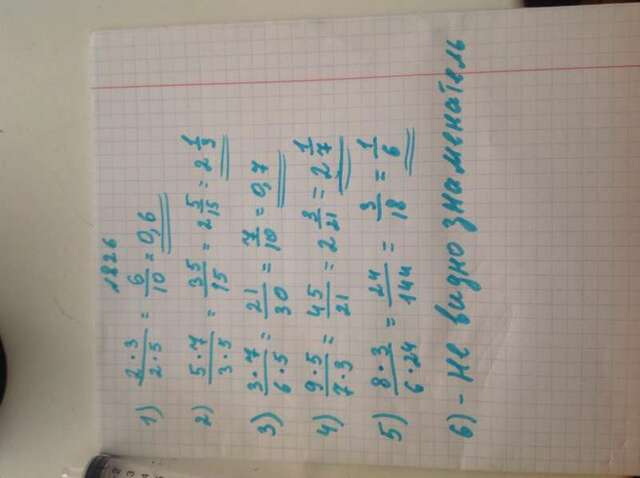 1826
1) 2·3/2·5 = 6/10 = 0,6
2) 5·7/3·5 = 35/15 = 2 5/15 = 2 1/3
3) 3·7/6·5 = 21/30 = 7/10 = 0,7
4) 9·5/7·3 = 45/21 = 2 3/21 = 2 1/7
5) 8·3/6·24 = 24/144 = 3/18 = 1/6
6) - не видно знаменатель